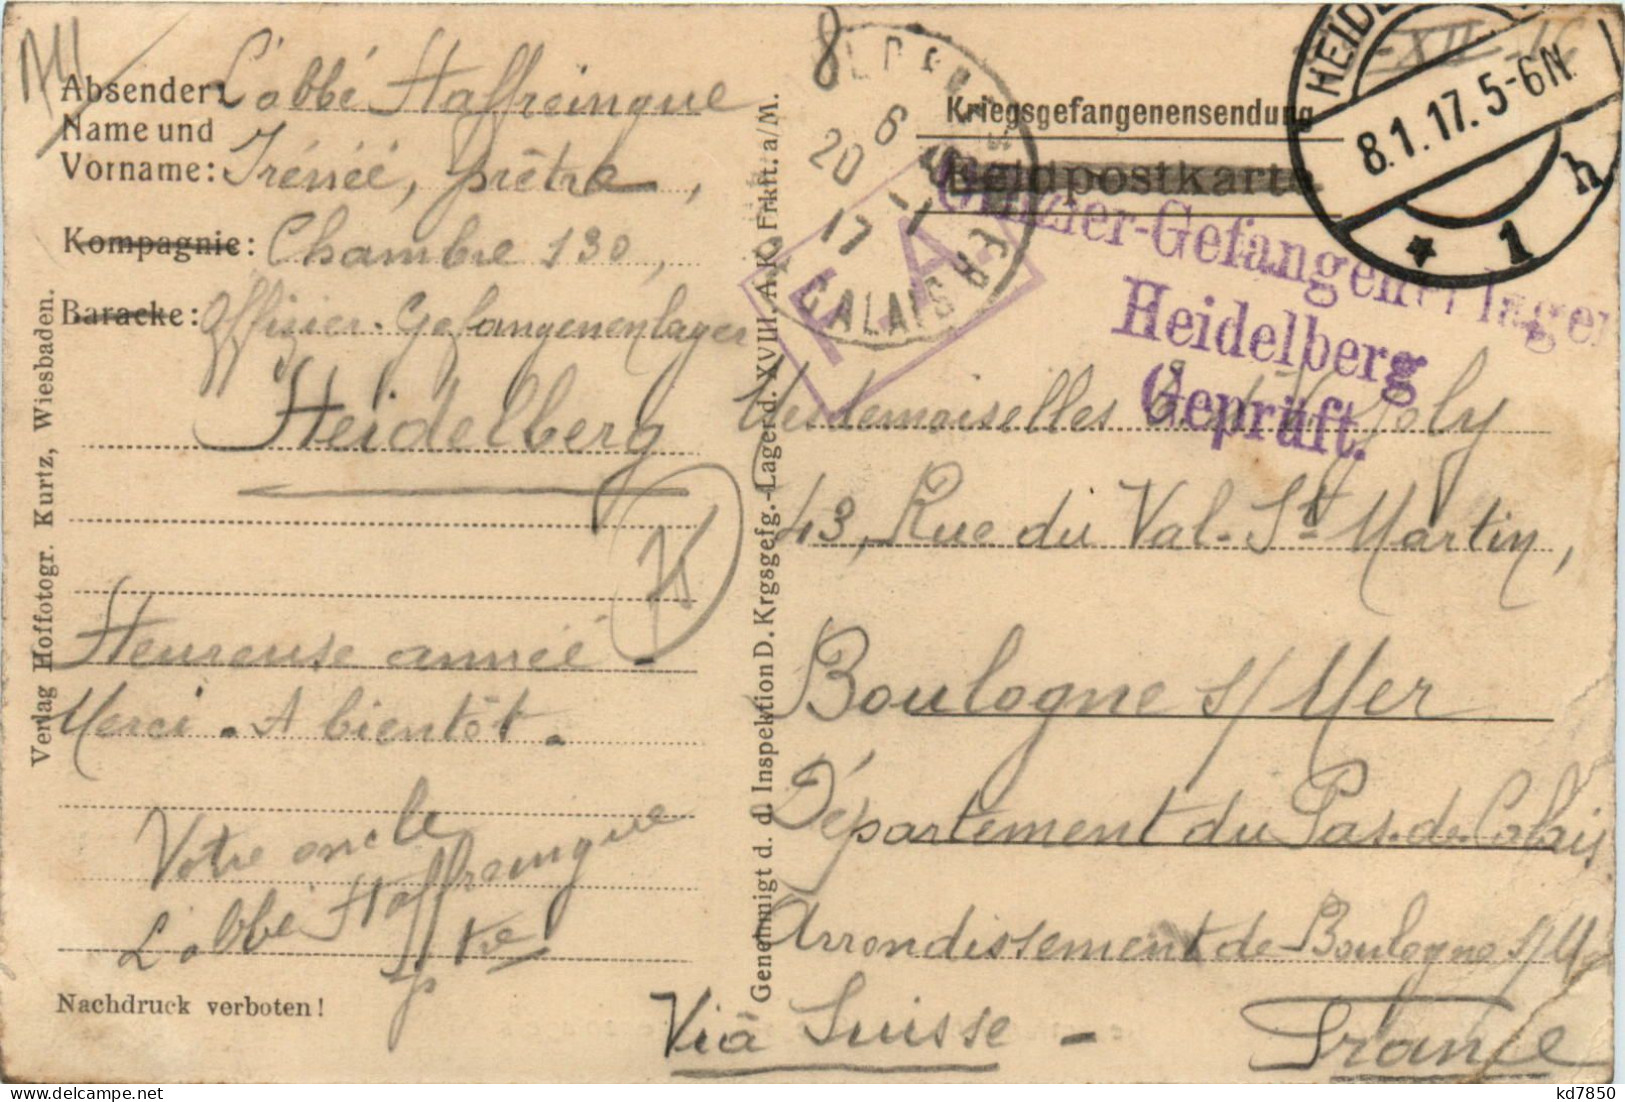 Absender: L'abbé Haffreingue
Name und
Vorname: Irénée, prêtre,
Kompagnie: Chambre 130,
Baracke: Offizier-Gefangenenlager
Heidelberg
Heureuse année.
Merci. A bientôt.
Votre oncle
L'abbé Haffreingue
ptre
Nachdruck verboten!
Verlag Hoffotogr. Kurtz, Wiesbaden.
Genehmigt d. d. Inspektion D. Krgsgefg.-Lager d. XVIII. A. K. Frkft. a/M.
Kriegsgefangenensendung
Feldpostkarte
8.1.17.5-6N
* 1 h
6
20 1
17
CALAIS
F. A.
Offizier-Gefangenenlager
Heidelberg
Geprüft.
Mesdemoiselles Joly
43, Rue du Val-St Martin,
Boulogne s/Mer
Département du Pas-de-Calais
Arrondissement de Boulogne s/Mer
Viâ Suisse - France
kd7850